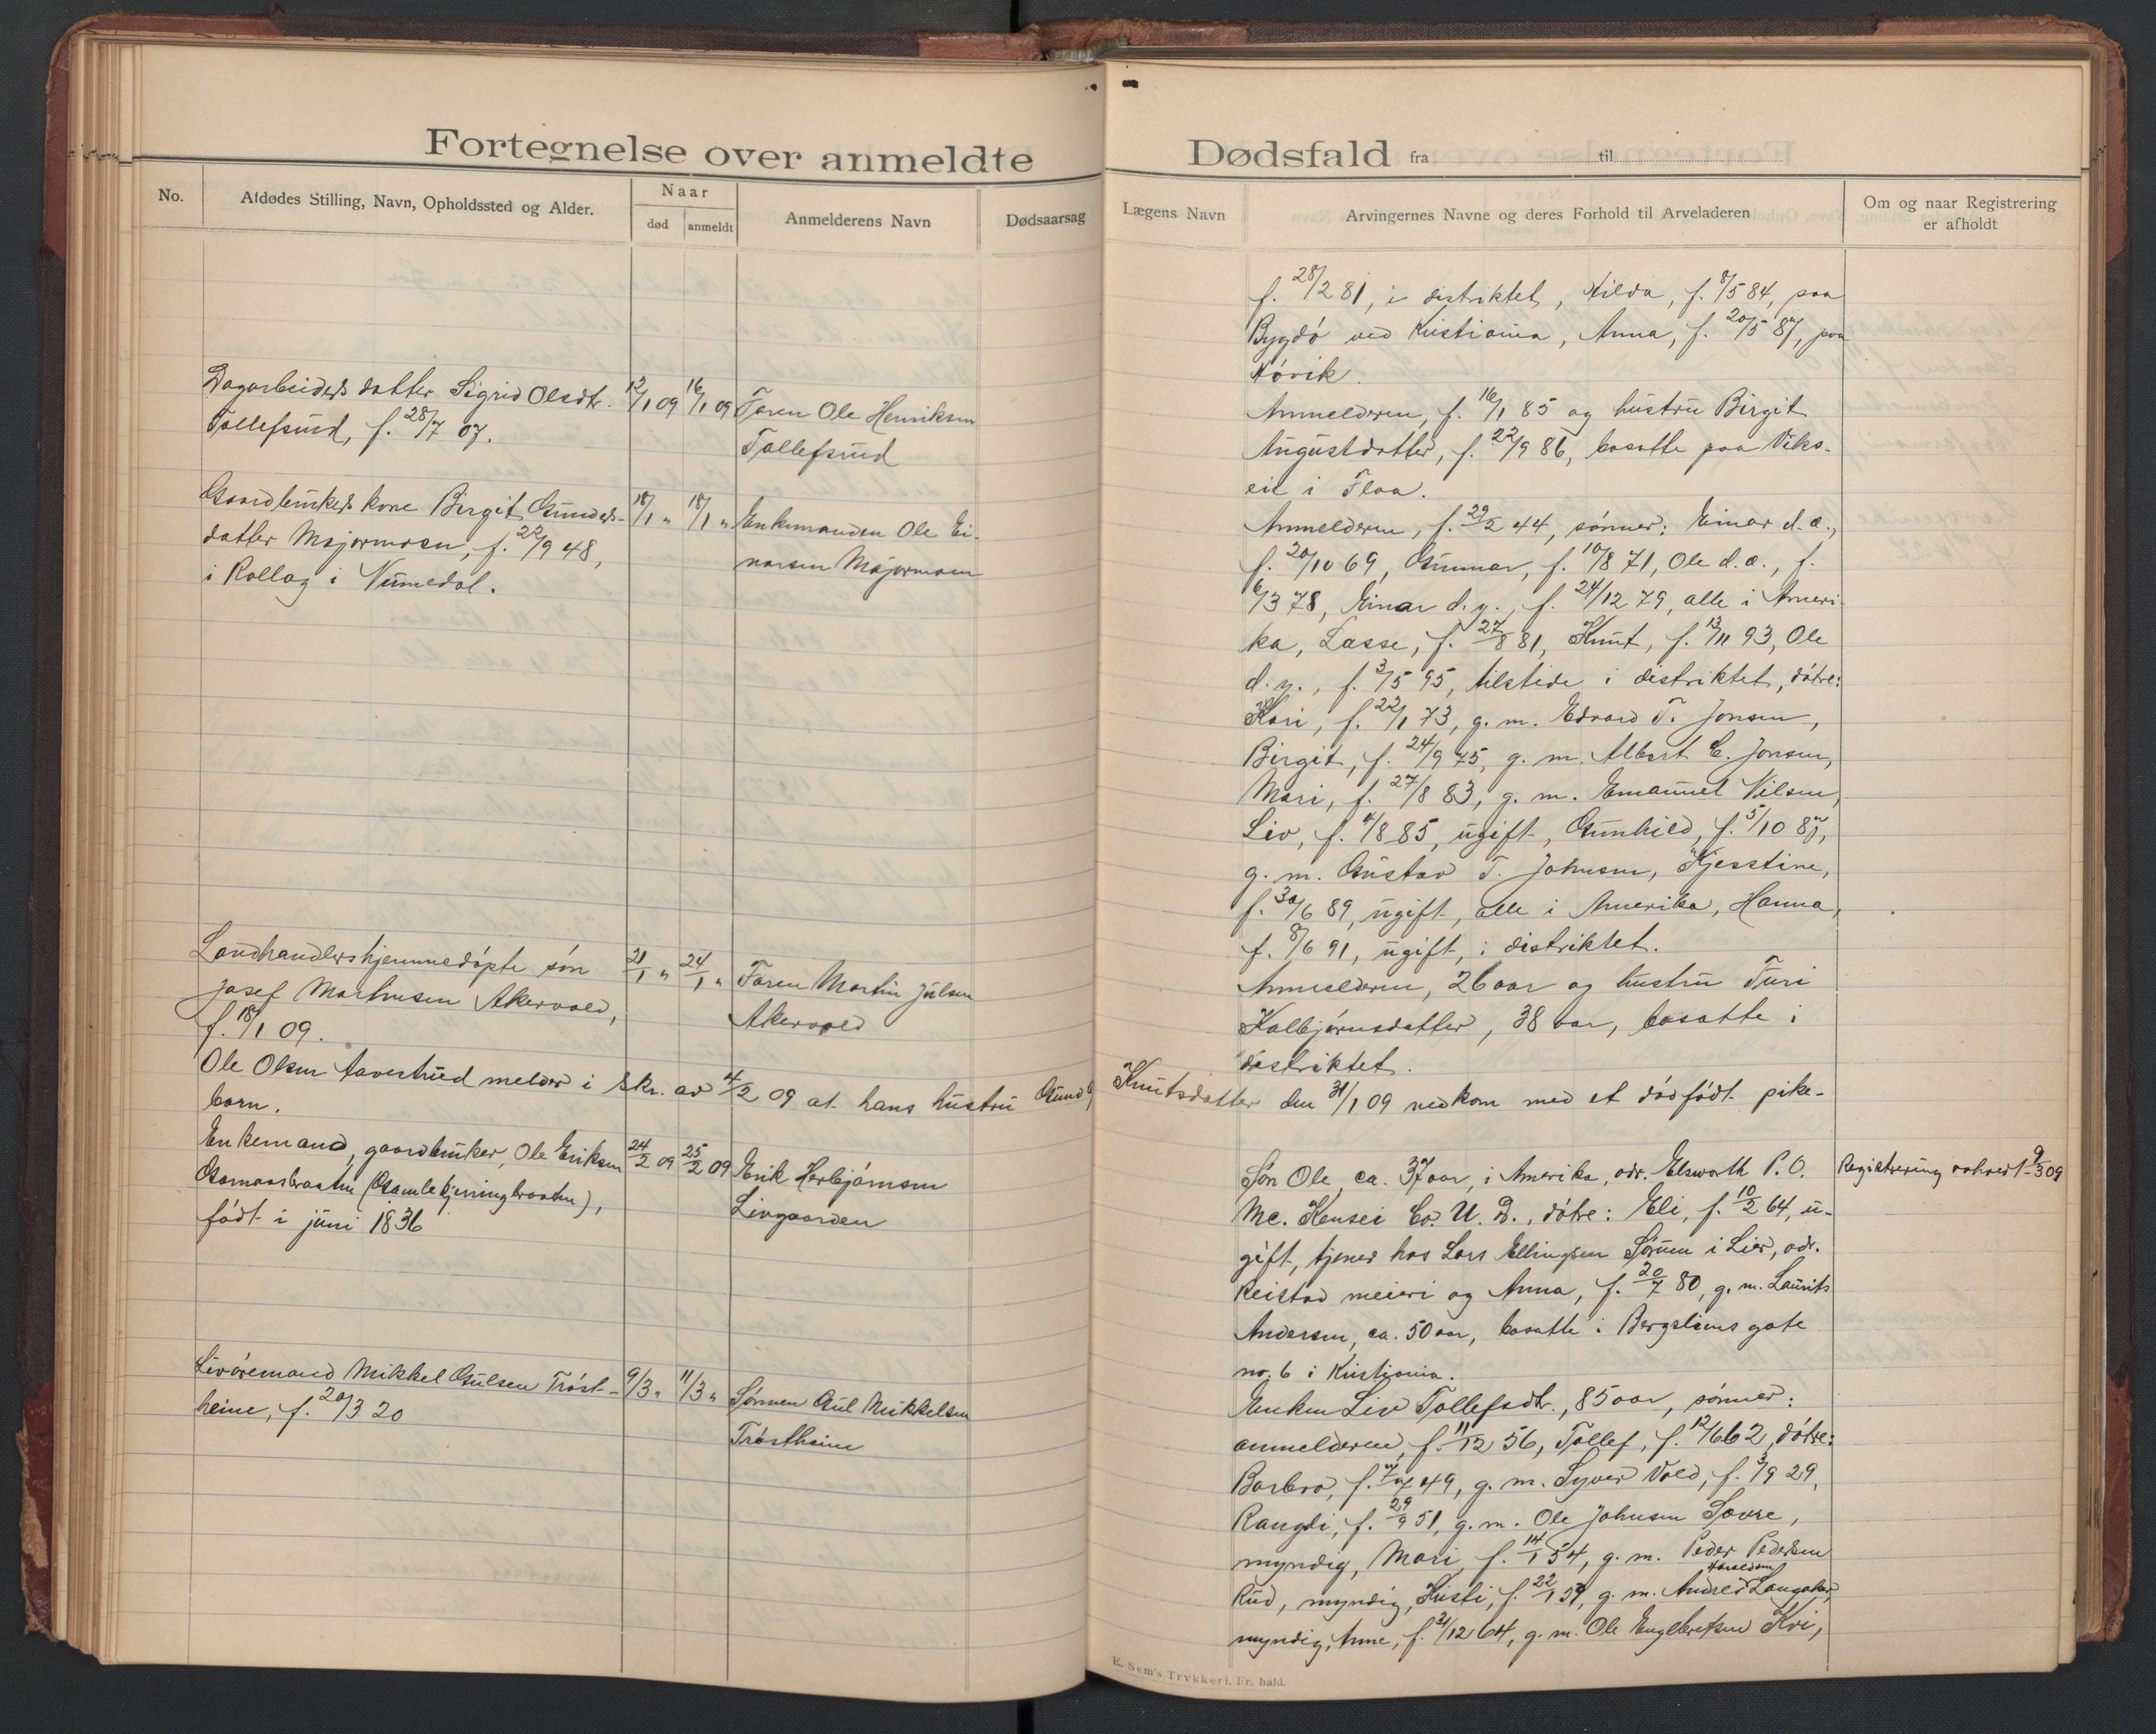 Fortegnelse over anmeldte
No.
Afdødes Stilling, Navn, Opholdssted og Alder.
Naar
død
anmeldt
Anmelderens Navn
Dødsaarsag
Dagarbeiders datter Sigrid Olsdtr. 12/1 09 16/1 09 Faren Ole Henriksen
Tollefsrud, f. 28/7 07.
Tollefsrud
Gaardbrukers kone Birgit Gunders- 18/1 " 18/1 " Enkemanden Ole Ei-
datter Majormoen, f. 22/9 48,
narsen Majormoen
i Rollag i Numedal.
Landhandlers hjemmedøpte søn 21/1 " 24/1 " Faren Martin Julsen
Josef Martinsen Akervold,
Akervold
f. 18/1 09.
Ole Olsen Aavestrud melder i skr. av 4/2 09 at hans hustru Gunds
barn.
Enkemand, gaardbruker, Ole Eriksen 24/2 09 25/2 09 Erik Herbjørnsen
Gamansbraaten (Gamlekjerringbraaten),
Livgaarden
født i juni 1836
Livøremand Mikkel Gulsen Trøst- 9/3 " 11/3 " Sønnen Gul Mikkelsen
heim, f. 20/3 20
Trøstheim
Dødsfald fra til
Lægens Navn
Arvingernes Navne og deres Forhold til Arveladeren
Om og naar Registrering
er afholdt
f. 28/2 81, i distriktet, Hilda, f. 8/5 84, paa
Bygdø ved Kristiania, Anna, f. 20/5 87, paa
Høvik.
Anmelderen, f. 16/1 85 og hustru Birgit
Augustdatter, f. 22/9 86, bosatte paa Viks-
eie i Flaa.
Anmelderen, f. 29/2 44, sønner: Einar d. æ.,
f. 20/10 69, Gunnar, f. 10/8 71, Ole d. æ., f.
6/3 78, Einar d. y., f. 24/12 79, alle i Ameri-
ka, Lasse, f. 27/8 81, Knut, f. 13/11 93, Ole
d. y., f. 3/5 95, tilstede i distriktet, døtre:
Kari, f. 22/1 73, g. m. Edvard T. Jonsen,
Birgit, f. 24/9 75, g. m. Albert C. Jonsen,
Mari, f. 27/8 83, g. m. Emanuel Nilsen,
Liv, f. 4/8 85, ugift, Gunhild, f. 5/10 87,
g. m. Gustav T. Johnsen, Kjesstine,
f. 30/6 89, ugift, alle i Amerika, Hanna,
f. 8/6 91, ugift, i distriktet.
Anmelderen, 26 aar og hustru Turi
Kolbjørnsdatter, 38 aar, bosatte i
distriktet.
Knutsdatter den 31/1 09 nedkom med et dødfødt pike-
Søn Ole, ca. 37 aar, i Amerika, adr. Elsworth P. O. Registrering avholdt 9/3 09
Mc. Kensei Co. U. D., døtre: Eli, f. 10/2 64, u-
gift, tjener hos Lars Ellingsen Sørum i Lier, adr.
Reistad meieri og Anna, f. 20/7 80, g. m. Laurits
Andersen, ca. 50 aar, bosatte i Bergsliens gate
no. 6 i Kristiania.
Enken Liv Tollefsdtr., 85 aar, sønner:
anmelderen, f. 11/12 56, Tollef, f. 12/6 62, døtre:
Barbro, f. 7/7 49, g. m. Syver Vold, f. 3/9 29,
Rangdi, f. 29/9 51, g. m. Ole Johnsen Sævre,
myndig, Mari, f. 14/1 54, g. m. Peder Pedersen
Rud, myndig, Kristi, f. 22/1 59, g. m. Andreas Haraldsen Langaker,
myndig, Anne, f. 31/12 64, g. m. Ole Engebretsen Kvi,
E. Sem's Trykkeri. Fr. hald.